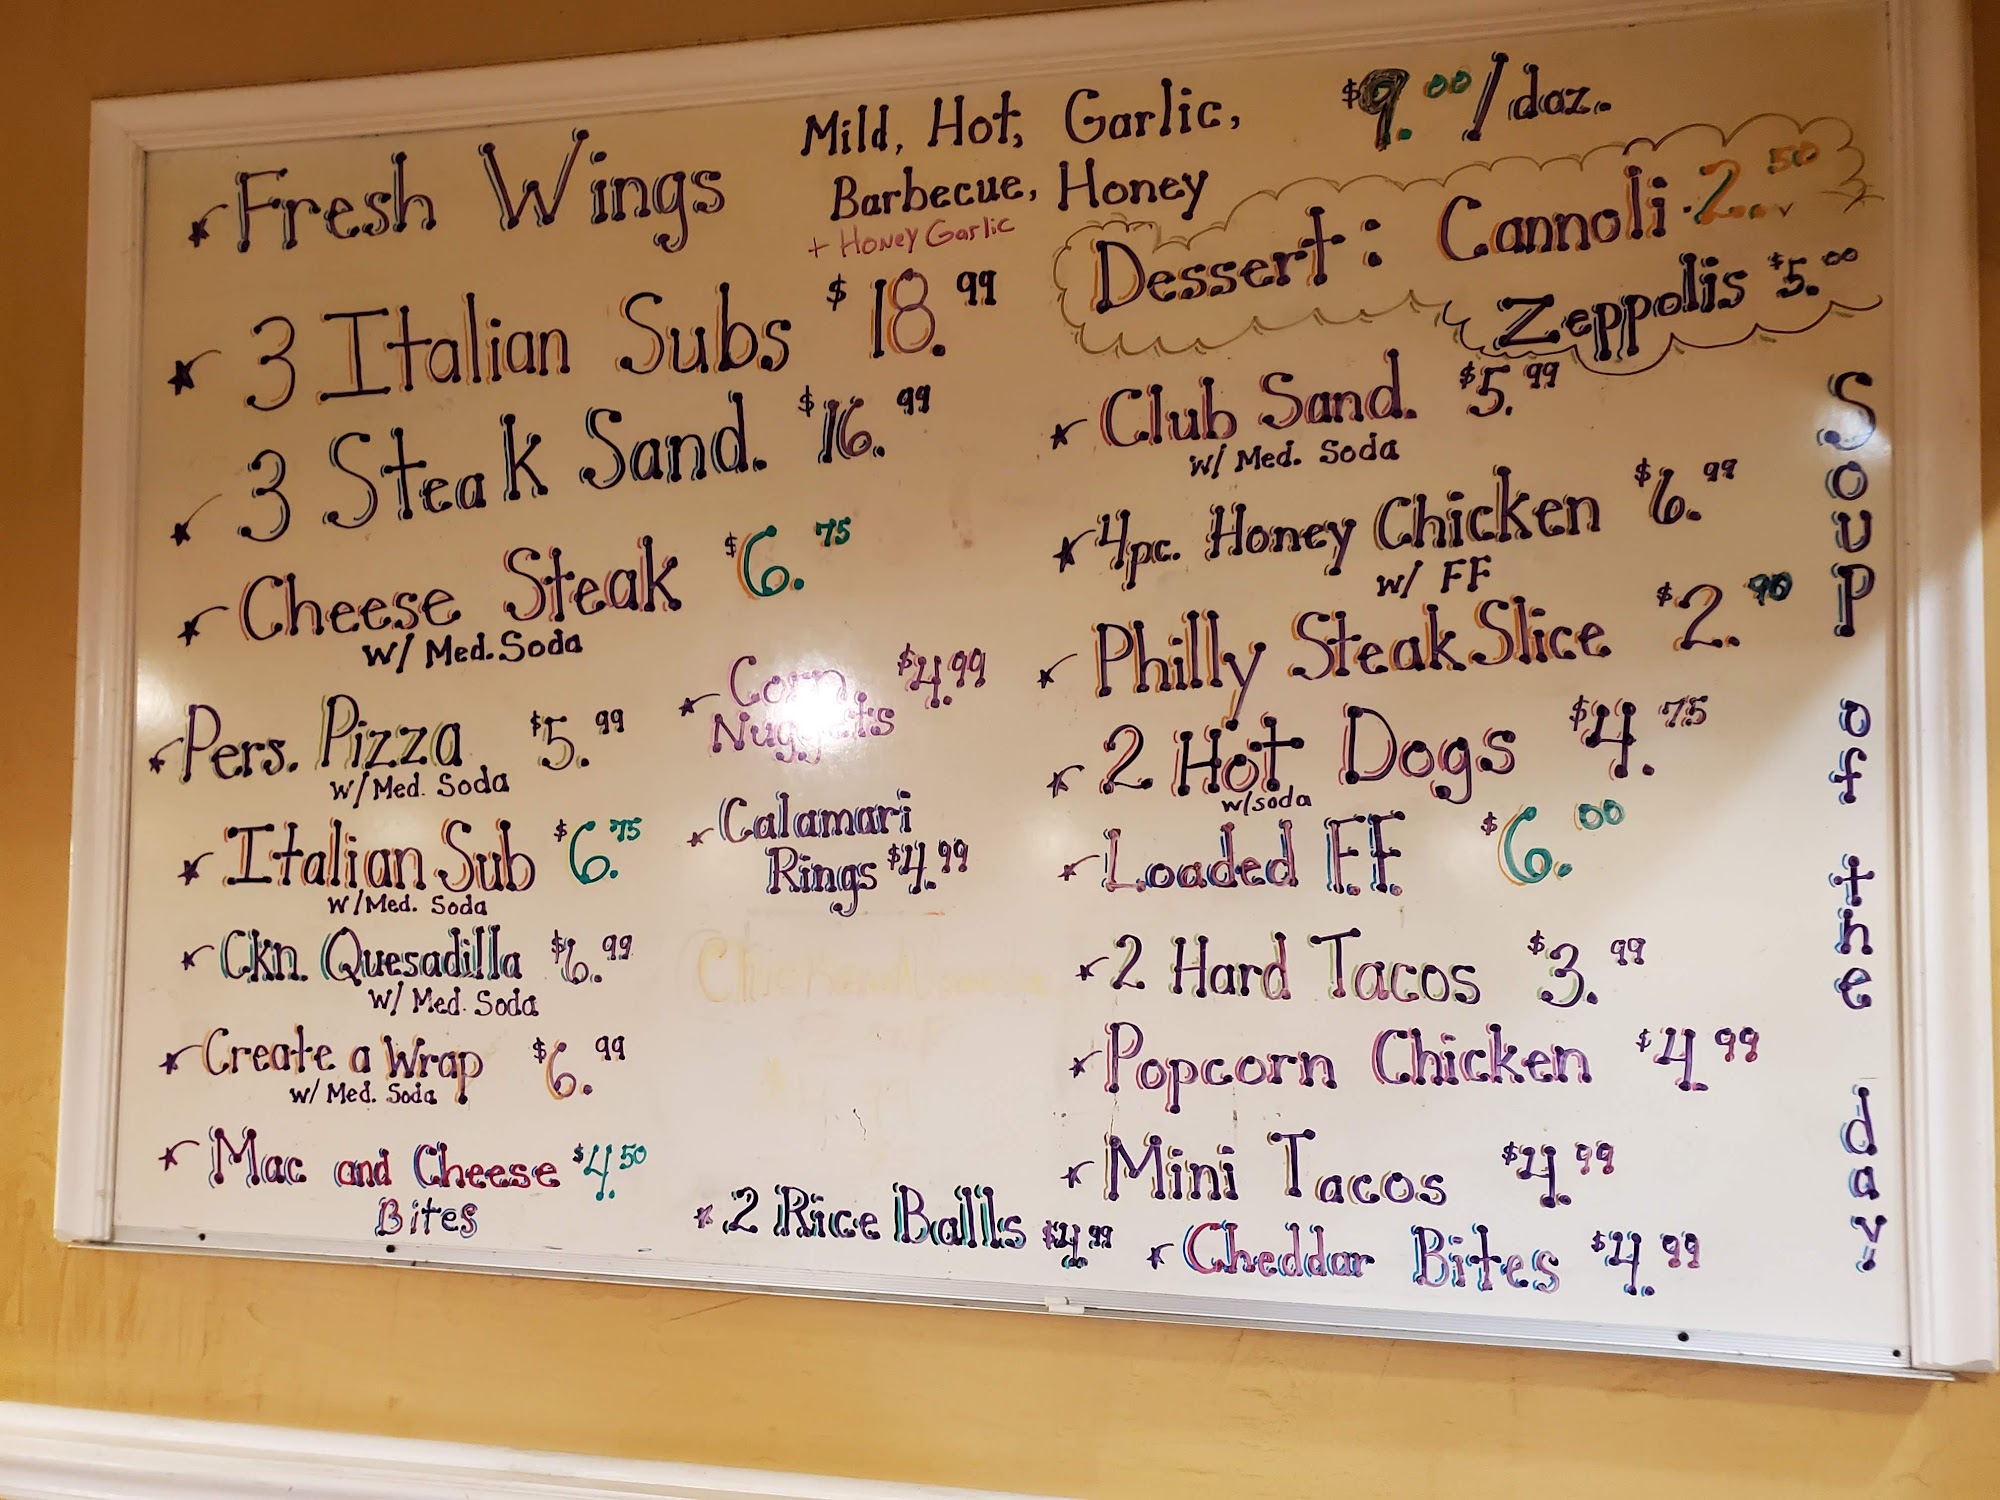 Fresh Wings
Mild, Hot, Garlic,
Barbecue, Honey
+ Honey Garlic
$9.00/doz.
Dessert: Cannoli 2.50
Zeppolis $5.00
3 Italian Subs $18.99
3 Steak Sand. $16.99
Cheese Steak $6.75
w/ Med. Soda
Pers. Pizza $5.99
w/ Med. Soda
Italian Sub $6.75
w/ Med. Soda
Ckn. Quesadilla $6.99
w/ Med. Soda
Create a Wrap $6.99
w/ Med. Soda
Mac and Cheese $4.50
Bites
Corn $4.99
Nuggets
Calamari
Rings $4.99
2 Rice Balls $4.99
Club Sand. $5.99
w/ Med. Soda
4pc. Honey Chicken $6.99
w/ FF
Philly Steak Slice $2.90
2 Hot Dogs $4.75
w/soda
Loaded F.F. $6.00
2 Hard Tacos $3.99
Popcorn Chicken $4.99
Mini Tacos $4.99
Cheddar Bites $4.99
Soup of the day!